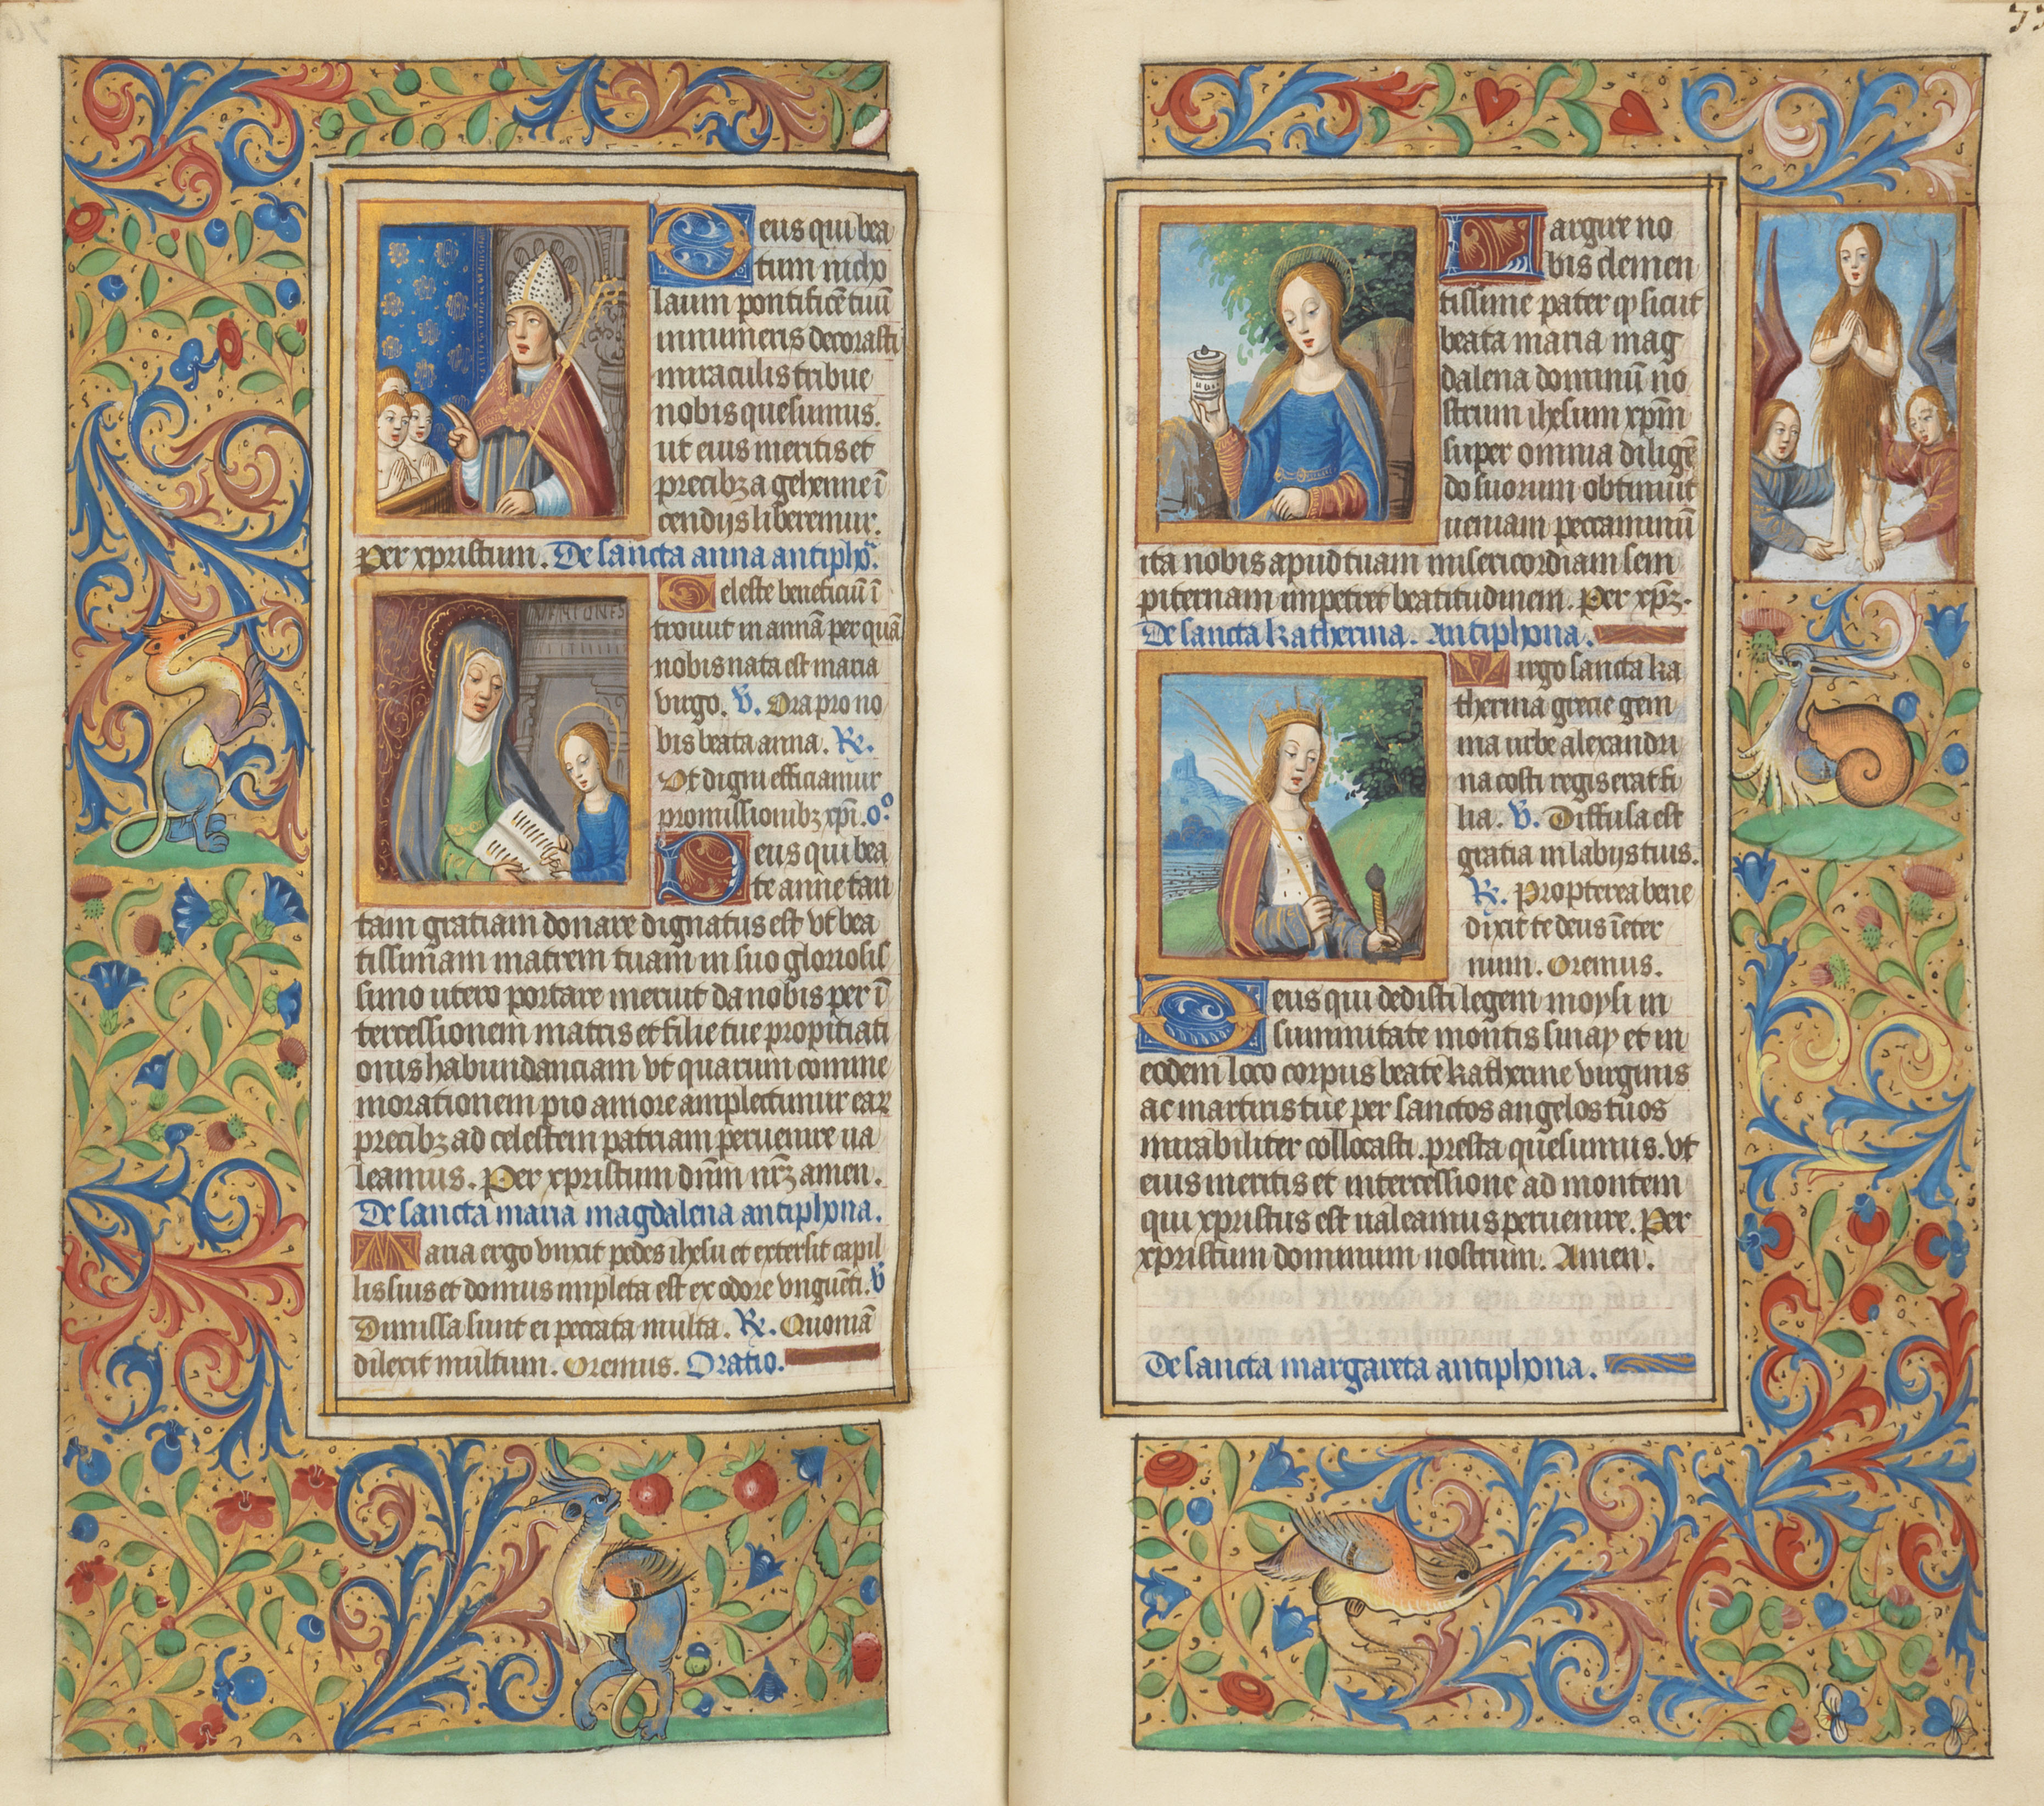 Deus qui bea
tum nicho
laum pontificē tuū
innumeris decorasti
miraculis tribue
nobis quesumus.
ut eius meritis et
precibꝫ a gehenne ī
cendijs liberemur.
Per xpristum. De sancta anna antipho.
Celeste beneficiū ī
trouit in annā per quā
nobis nata est maria
virgo. V. Ora pro no
bis beata anna. R.
Ut digni efficiamur
promissionibꝫ xp̄i. O.
Deus qui bea
te anne tan
tam gratiam donare dignatus est vt bea
tissimam matrem tuam in suo gloriosis
simo utero portare meruit da nobis per ī
tercessionem matris et filie tue propitiati
onis habundanciam vt quarum comme
morationem pio amore amplectimur eaꝝ
precibꝫ ad celestem patriam peruenire ua
leamus. Per xpristum dn̄m nr̄ꝫ amen.
De sancta maria magdalena antiphona.
Maria ergo vnxit pedes ihesu et extersit capil
lis suis et domus impleta est ex odore vnguēti. V
Dimissa sunt ei peccata multa. R. Quoniā
dilexit multum. Oremus. Oratio.
Largire no
bis clemen
tissime pater ꝙ sicut
beata maria mag
dalena dominū no
strum ihesum xp̄m
super omnia diligē
do suorum obtinuit
ueniam peccaminū
ita nobis apud tuam misericordiam sem
piternam impetret beatitudinem. Per xp̄ꝫ.
De sancta katherina. Antiphona.
Virgo sancta ka
therina grecie gem
ma urbe alexandri
na costi regis erat fi
lia. V. Diffusa est
gratia in labijs tuis.
R. Propterea bene
dixit te deus ī eter
num. Oremus.
Deus qui dedisti legem moysi in
summitate montis sinay et in
eodem loco corpus beate katherine virginis
ac martiris tue per sanctos angelos tuos
mirabiliter collocasti. presta quesumus. vt
eius meritis et intercessione ad montem
qui xpristus est ualeamus peruenire. Per
xpristum dominum nostrum. Amen.
De sancta margareta antiphona.